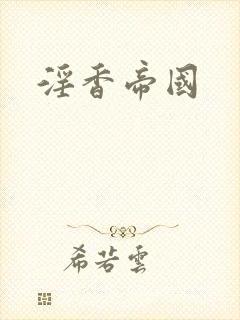 淫香帝國
希若雲